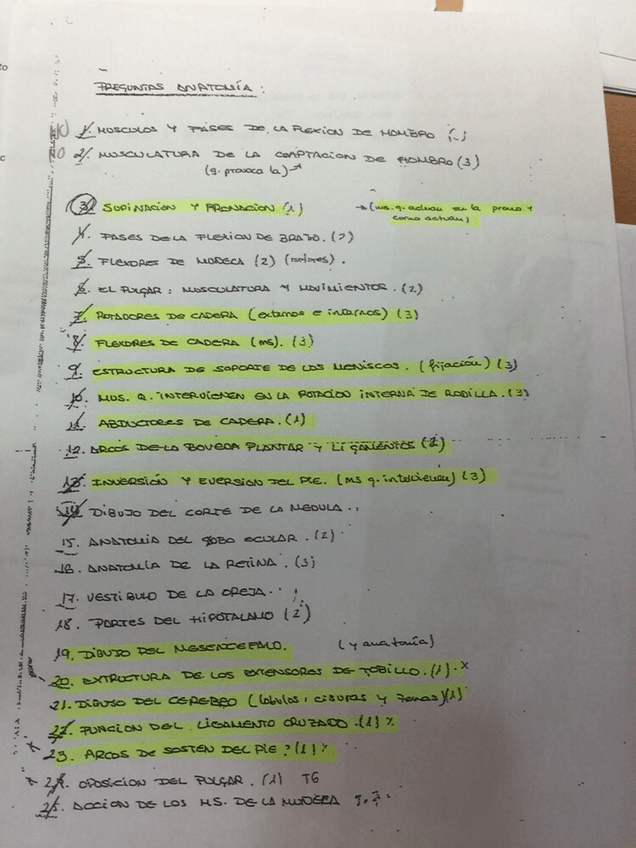 PREGUNTAS ANATOMÍA:
1. MUSCULOS Y FASES DE LA FLEXION DE HOMBRO
2. MUSCULATURA DE LA COAPTACION DE HOMBRO (3)
(q. provoca la)
3. SUPINACION Y PRONACION (1) → (ms. q. actuan en la prono y
como actúan)
4. FASES DE LA FLEXION DE BRAZO. (2)
5. FLEXORES DE MUÑECA (2) (motores).
6. EL PULGAR: MUSCULATURA Y MOVIMIENTOS. (2)
7. ROTADORES DE CADERA (externos e internos) (3)
8. FLEXORES DE CADERA (ms). (3)
9. ESTRUCTURA DE SOPORTE DE LOS MENISCOS. (fijación) (3)
10. MUS. Q. INTERVIENEN EN LA ROTACION INTERNA DE RODILLA. (3)
11. ABDUCTORES DE CADERA. (1)
12. ARCOS DE LA BOVEDA PLANTAR Y LIGAMENTOS (2)
13. INVERSIÓN Y EVERSION DEL PIE. (ms q. intervienen) (3)
14. DIBUJO DEL CORTE DE LA MEDULA
15. ANATOMIA DEL GLOBO OCULAR. (2)
16. ANATOMÍA DE LA RETINA. (3)
17. VESTIBULO DE LA OREJA.
18. PARTES DEL HIPOTALAMO (2)
19. DIBUJO DEL MESENCEFALO. (y anatomía)
20. EXTRUCTURA DE LOS EXTENSORES DE TOBILLO. (1) x
21. DIBUJO DEL CEREBRO (lobulos, cisuras y zonas) (1)
22. FUNCION DEL LIGAMENTO CRUZADO. (1)
23. ARCOS DE SOSTEN DEL PIE? (1)
24. OPOSICION DEL PULGAR. (1) T6
25. ACCION DE LOS MS. DE LA MUÑECA